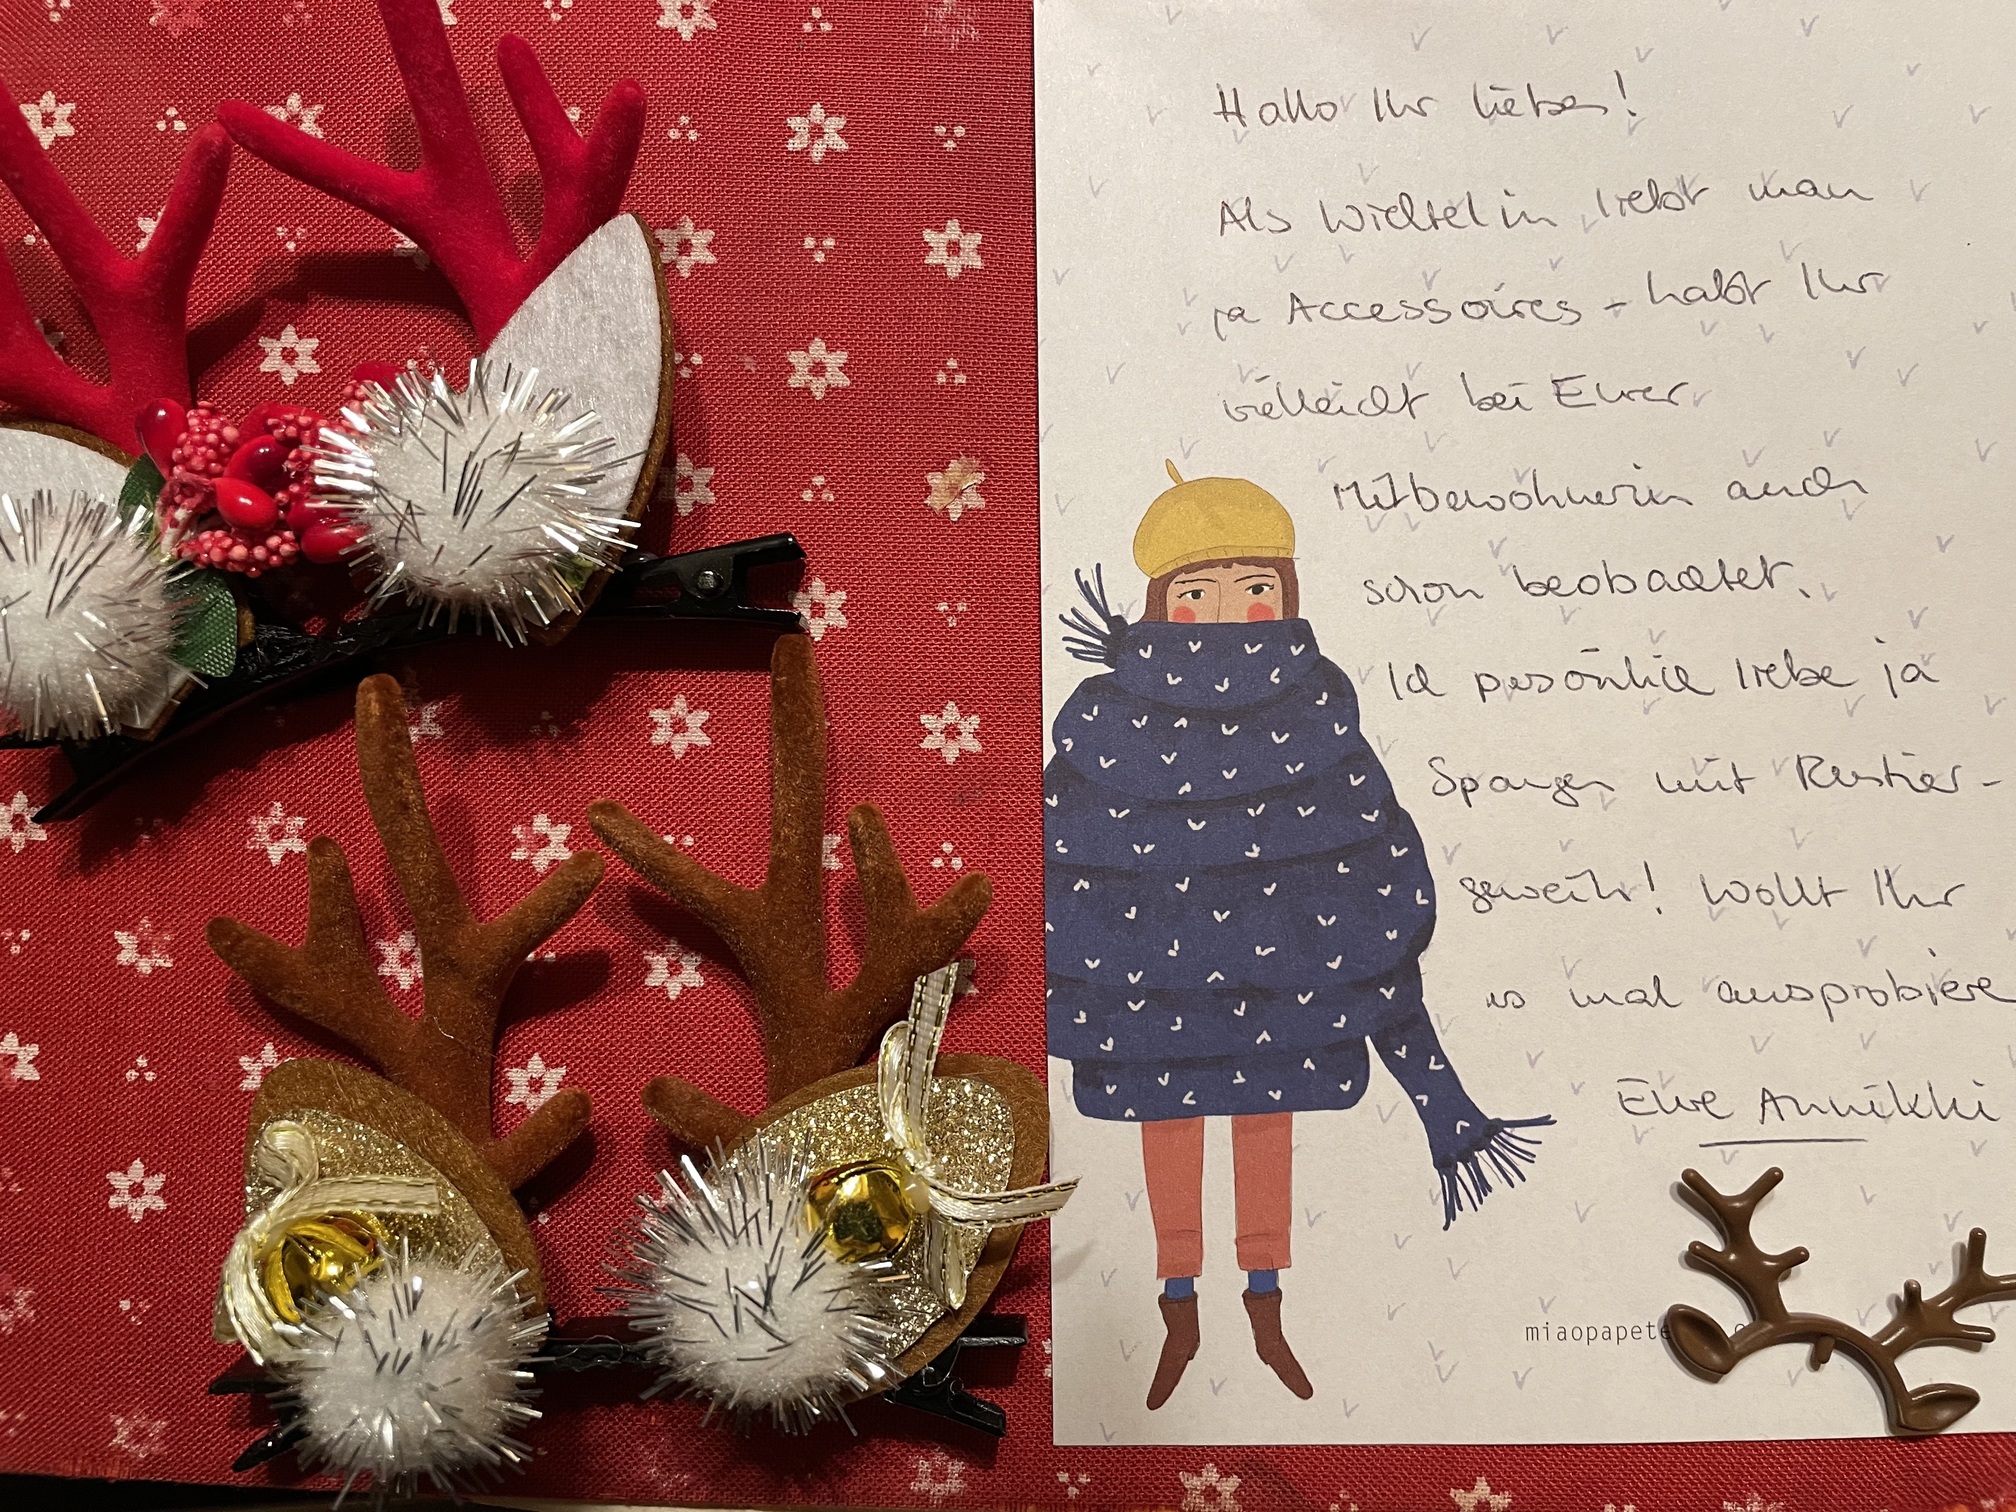 Hallo Ihr lieben!
Als Wichtelin liebt man
ja Accessoires - habt Ihr
vielleicht bei Eurer
Mitbewohnerin auch
schon beobachtet.
Ich persönlich liebe ja
Spangen mit Rentier-
geweih! Wollt Ihr
es mal ausprobiere
Eure Annikki
miaopapete